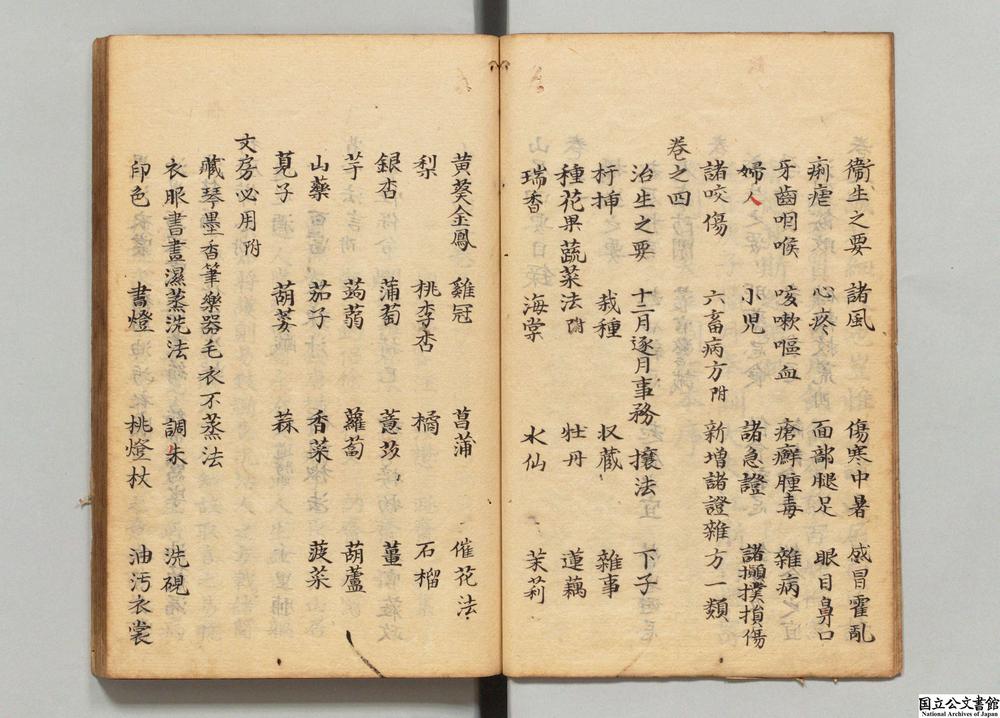 衞生之要 諸風 傷寒中暑 感冒霍亂
痢瘧 心疼 面部腿足 眼目鼻口
牙齒咽喉 咳嗽嘔血 瘡癬腫毒 雜病
婦人 小児 諸急證 諸攧撲損傷
諸咬傷 六畜病方附 新増諸證雜方一類
卷之四
治生之要 十二月逐月事務 攘法 下子
扦揷 栽種 収蔵 雜事
種花果蔬菜法附 牡丹 蓮藕
瑞香 海棠 水仙 茉莉
黄葵金鳳 雞冠 菖蒲 催花法
梨 桃李杏 橘 石榴
銀杏 蒲萄 薏苡 薑
芋 蒟蒻 蘿蔔 葫蘆
山藥 茄子 香菜 菠菜
莧子 葫荽 菻
文房必用附
藏琴墨香筆樂器毛衣不蒸法
衣服書畫濕蒸洗法 調朱 洗硯
印色 書燈 桃燈杖 油汚衣裳
国立公文書館
National Archives of Japan